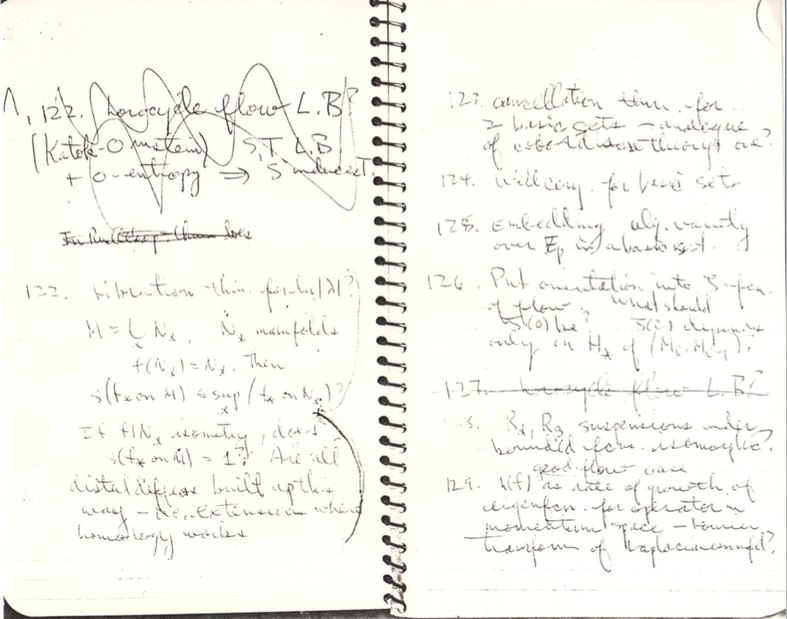 122. Horocycle flow L.B?
(Katok-Ornstein) S,T L.B.
+ 0-entropy ⇒ S induces T.
122. Fibration thm. for ln|λ|?
M = ∪ Nₓ, Nₓ manifolds
f(Nₓ) = Nₓ. Then
s(f* on M) ≤ sup (f* on Nₓ)?
If f|Nₓ isometry, does
s(f* on M) = 1? Are all
distal diffeos built up this
way – i.e. extensions where
homology works
123. cancellation thm. for
2 basic sets – analogue
of cobordism theory?
124. Weil conj. for basic sets
125. Embedding alg. variety
over Fp in a basic set.
126. Put orientation into ζ-fcn.
of flow What should
ζ(0) be? ζ(0) depends
only on H* of (Mi, Mi-1)?
127. horocycle flow L.B.?
suspensions under
bounded fcns. isomorphic?
good flow case
129. h(f) as rate of growth of
eigenfcn. for operator in
momentum space – Fourier
transform of Laplacian on mfd?